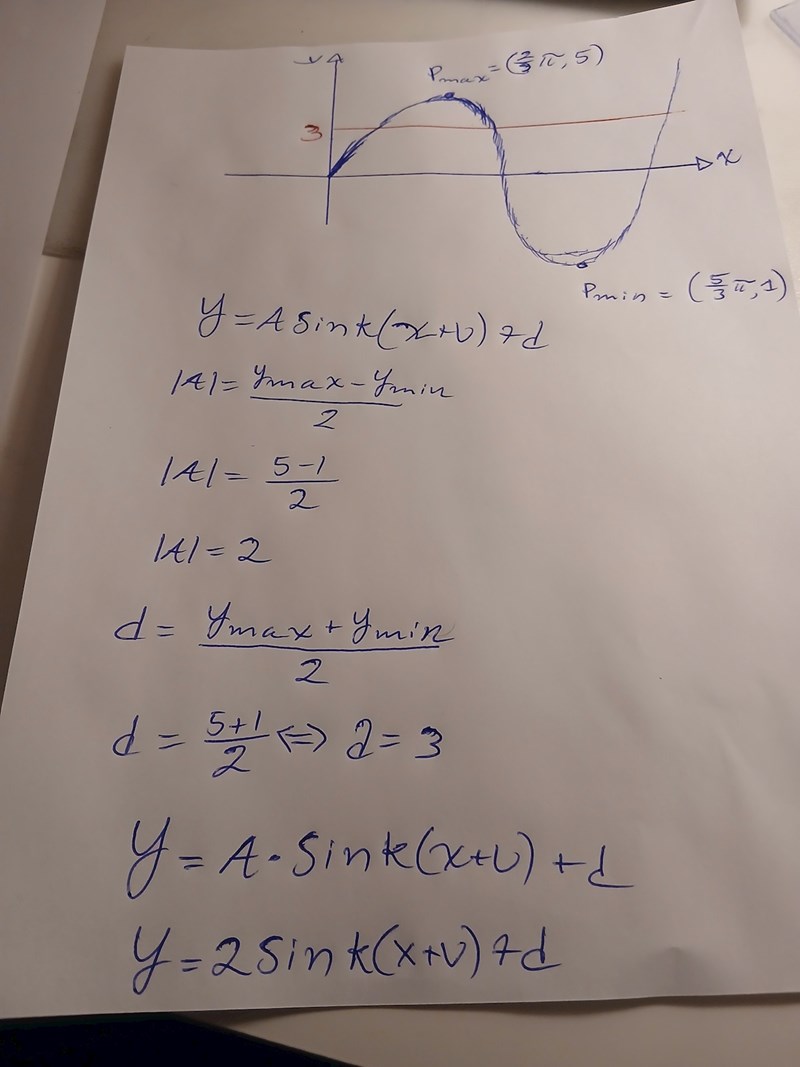 y
Pmax = (2/3 π, 5)
3
x
Pmin = (5/3 π, 1)
y = A sin k(x+v) + d
|A| = ymax - ymin / 2
|A| = 5-1 / 2
|A| = 2
d = ymax + ymin / 2
d = 5+1 / 2 ⇔ d = 3
y = A · sin k(x+v) + d
y = 2 sin k(x+v) + d